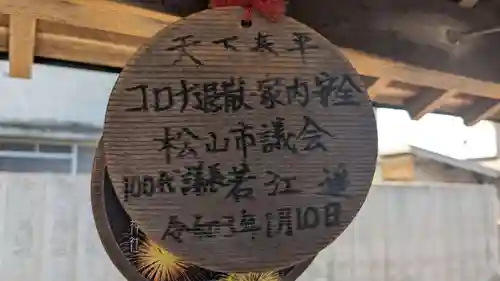 天下泰平
コロナ退散 家内安全
松山市議会
100代議長 若江 進
令和3年1月10日
神社